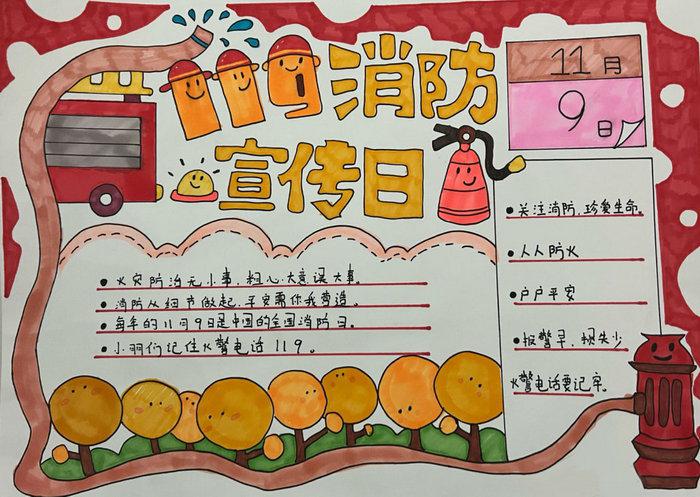 119消防
宣传日
11月
9日
●火灾防治无小事，粗心大意误大事。
●消防从细节做起，平安需你我营造。
●每年的11月9日是中国的全国消防日。
●小朋们记住火警电话119。
●关注消防，珍爱生命。
●人人防火
●户户平安
●报警早，损失少
火警电话要记牢。